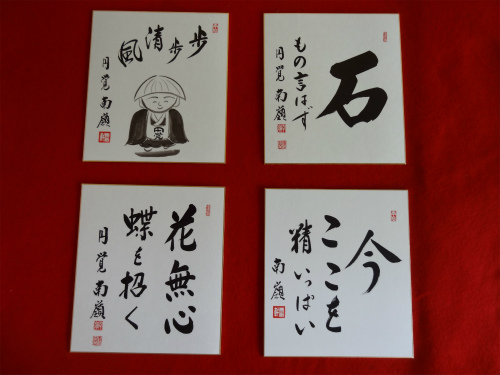 歩歩清風
円覚 南嶺
石
もの言はず
円覚 南嶺
花無心
蝶を招く
円覚 南嶺
今
ここを
精いっぱい
南嶺